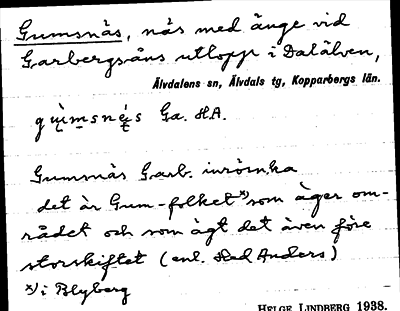 Gumsnäs, näs med änge vid
Garbergsåns utlopp i Dalälven,
Älvdalens sn, Älvdals tg, Kopparbergs län.
Ga. H.A.
Gumsnäs Garb. inrömka
det är Gum-folket x) som äger om-
rådet och som ägt det även före
storskiftet (enl. Hed Anders)
x) i Blyberg
HELGE LINDBERG 1938.